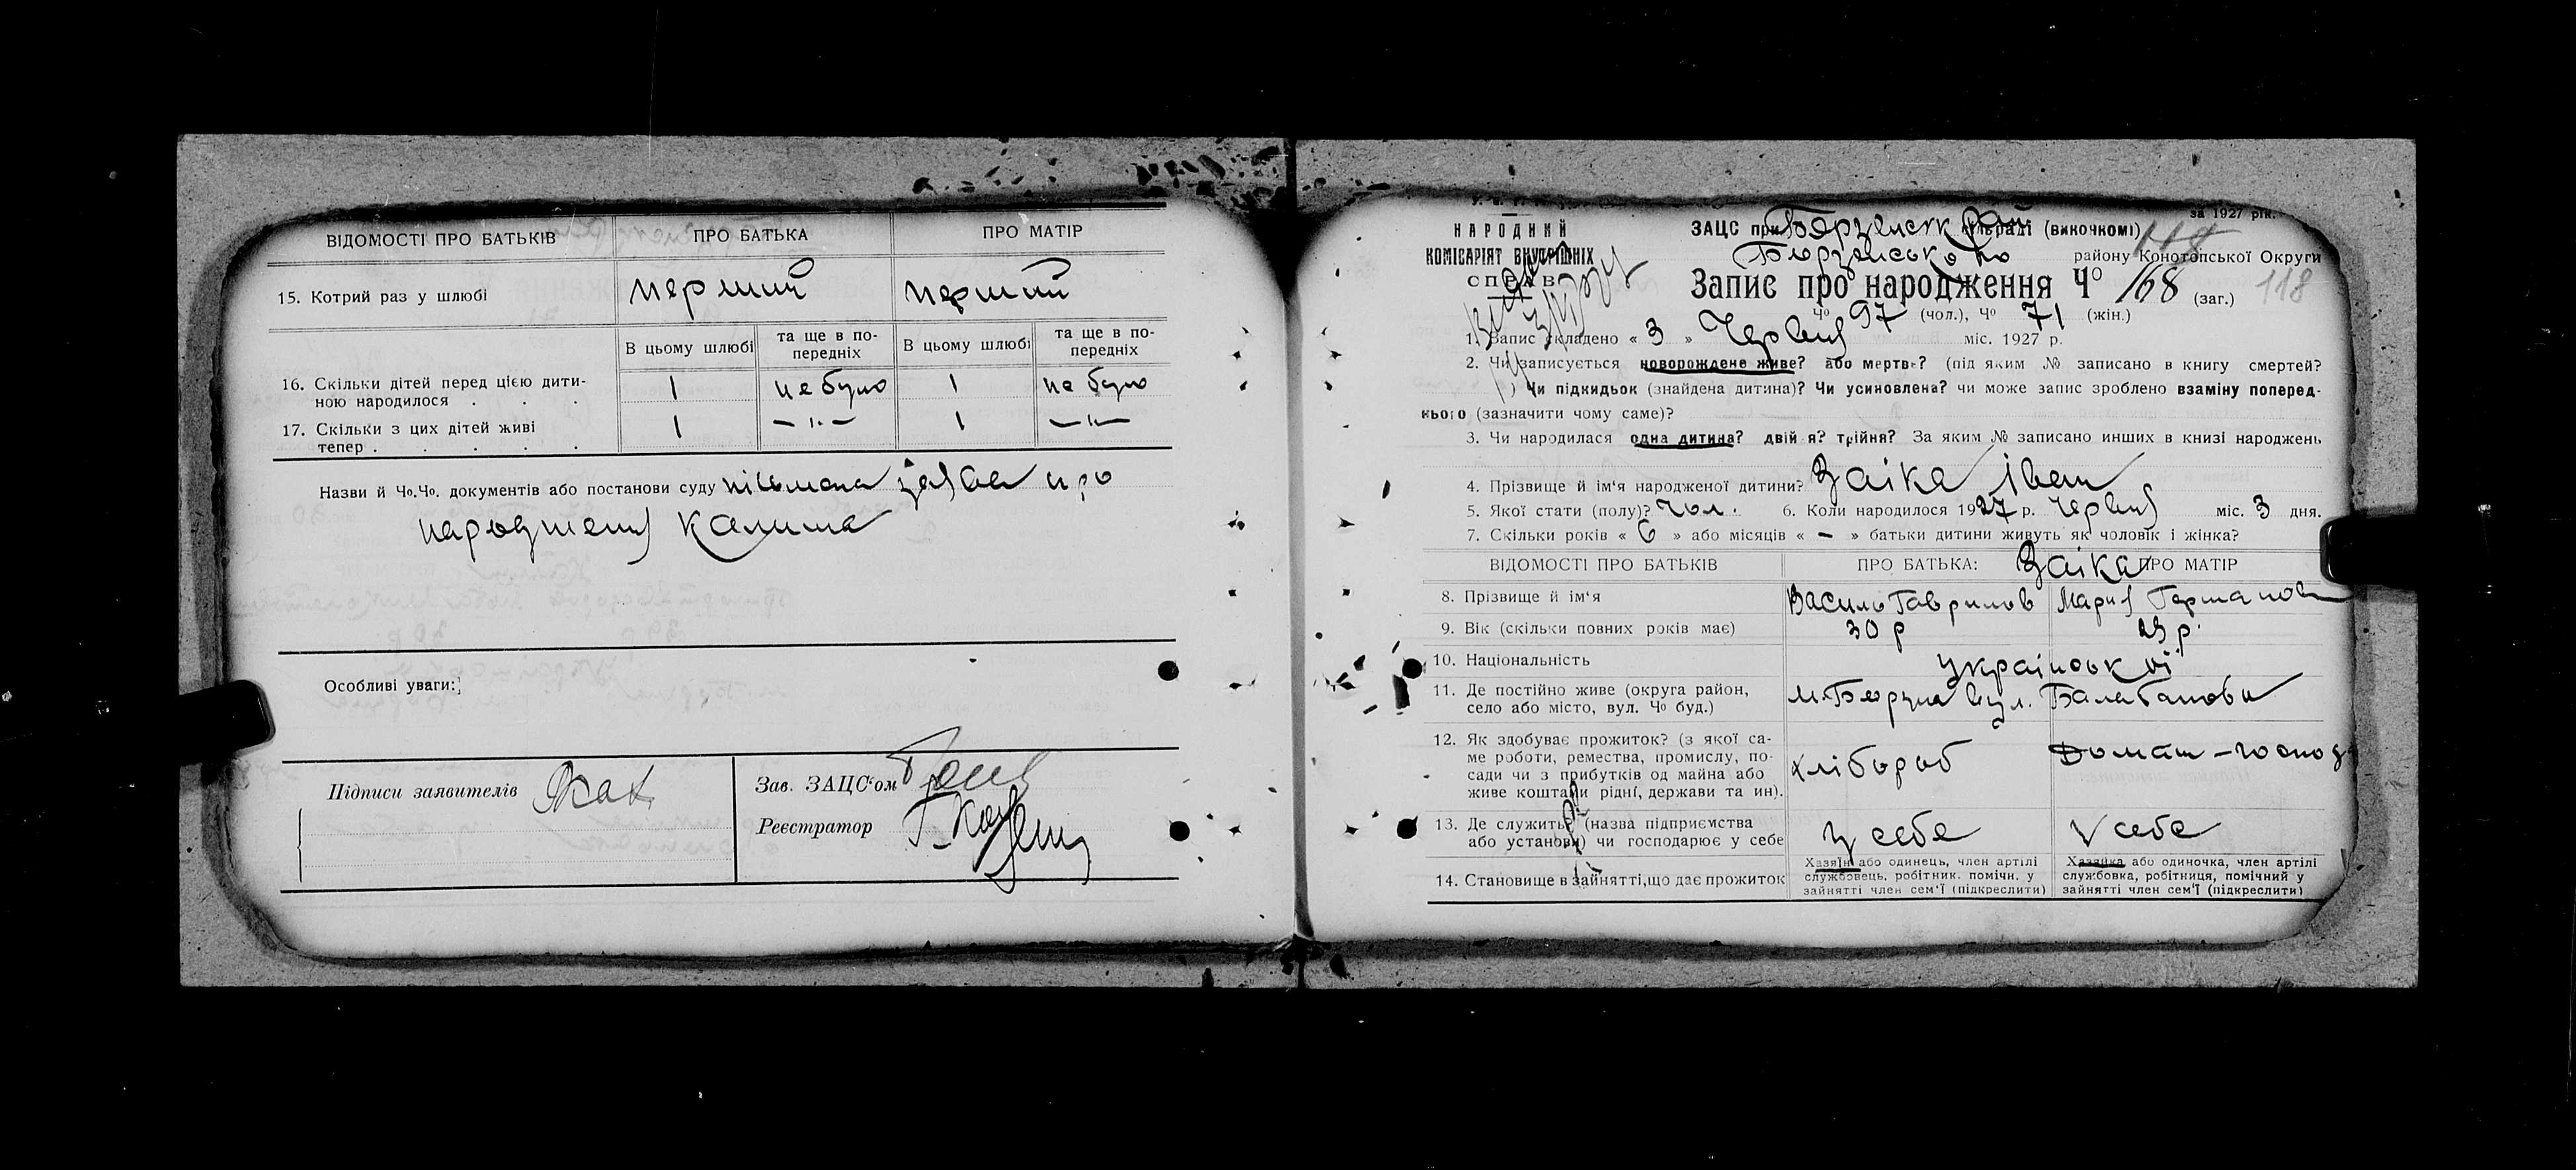 ВІДОМОСТІ ПРО БАТЬКІВ ПРО БАТЬКА ПРО МАТІР
15. Котрий раз у шлюбі перший перший
В цьому шлюбі та ще в по-передніх В цьому шлюбі та ще в по-передніх
16. Скільки дітей перед цією дити-
ною народилося . . . 1 не було 1 не було
17. Скільки з цих дітей живі
тепер . . . . . 1 — „ — 1 — „ —
Назви й Чо.Чо. документів або постанови суду письмена заява про
народження
Особливі уваги:
Підписи заявителів
Зав. ЗАЦС‘ом
Реєстратор
за 1927 рік.
НАРОДНИЙ
КОМІСАРІЯТ ВНУТРІШНІХ
СПРАВ
ЗАЦС при Борзенськ Рай (викочкомі) 118
Борзенського району Конотопської Округи
Запис про народження Чо 168 (заг.) 118
Чо 97 (чол.), Чо 71 (жін.)
1. Запис складено « 3 » Червня міс. 1927 р.
2. Чи записується новорождене живе? або мертве? (під яким № записано в книгу смертей?
) Чи підкидьок (знайдена дитина)? Чи усиновлена? чи може запис зроблено взаміну поперед-
нього (зазначити чому саме)?
3. Чи народилася одна дитина? двійня? трійня? За яким № записано инших в книзі народжень
4. Прізвище й ім‘я народженої дитини? Заіка Іван
5. Якої стати (полу)? чол. 6. Коли народилося 1927 р. Червня міс. 3 дня.
7. Скільки років « 6 » або місяців « — » батьки дитини живуть як чоловік і жінка?
ВІДОМОСТІ ПРО БАТЬКІВ ПРО БАТЬКА: Заіка ПРО МАТІР
8. Прізвище й ім‘я Василь Гаврилов Мария Германова
9. Вік (скільки повних років має) 30 р 23 р.
10. Національність українські
11. Де постійно живе (округа район,
село або місто, вул. Чо буд.) м. Борзна вул. Балабанова
12. Як здобуває прожиток? (з якої са-
ме роботи, ремества, промислу, по-
сади чи з прибутків од майна або
живе коштами рідні, держави та ин). хлібороб Домаш-господ
13. Де служить? (назва підприємства
або установи) чи господарює у себе у себе у себе
14. Становище в зайнятті, що дає прожиток
Хазяїн або одинець, член артілі
службовець, робітник, помічн. у
зайнятті член сем‘ї (підкреслити)
Хазяйка або одиночка, член артілі
службовка, робітниця, помічний у
зайнятті член сем‘ї (підкреслити)